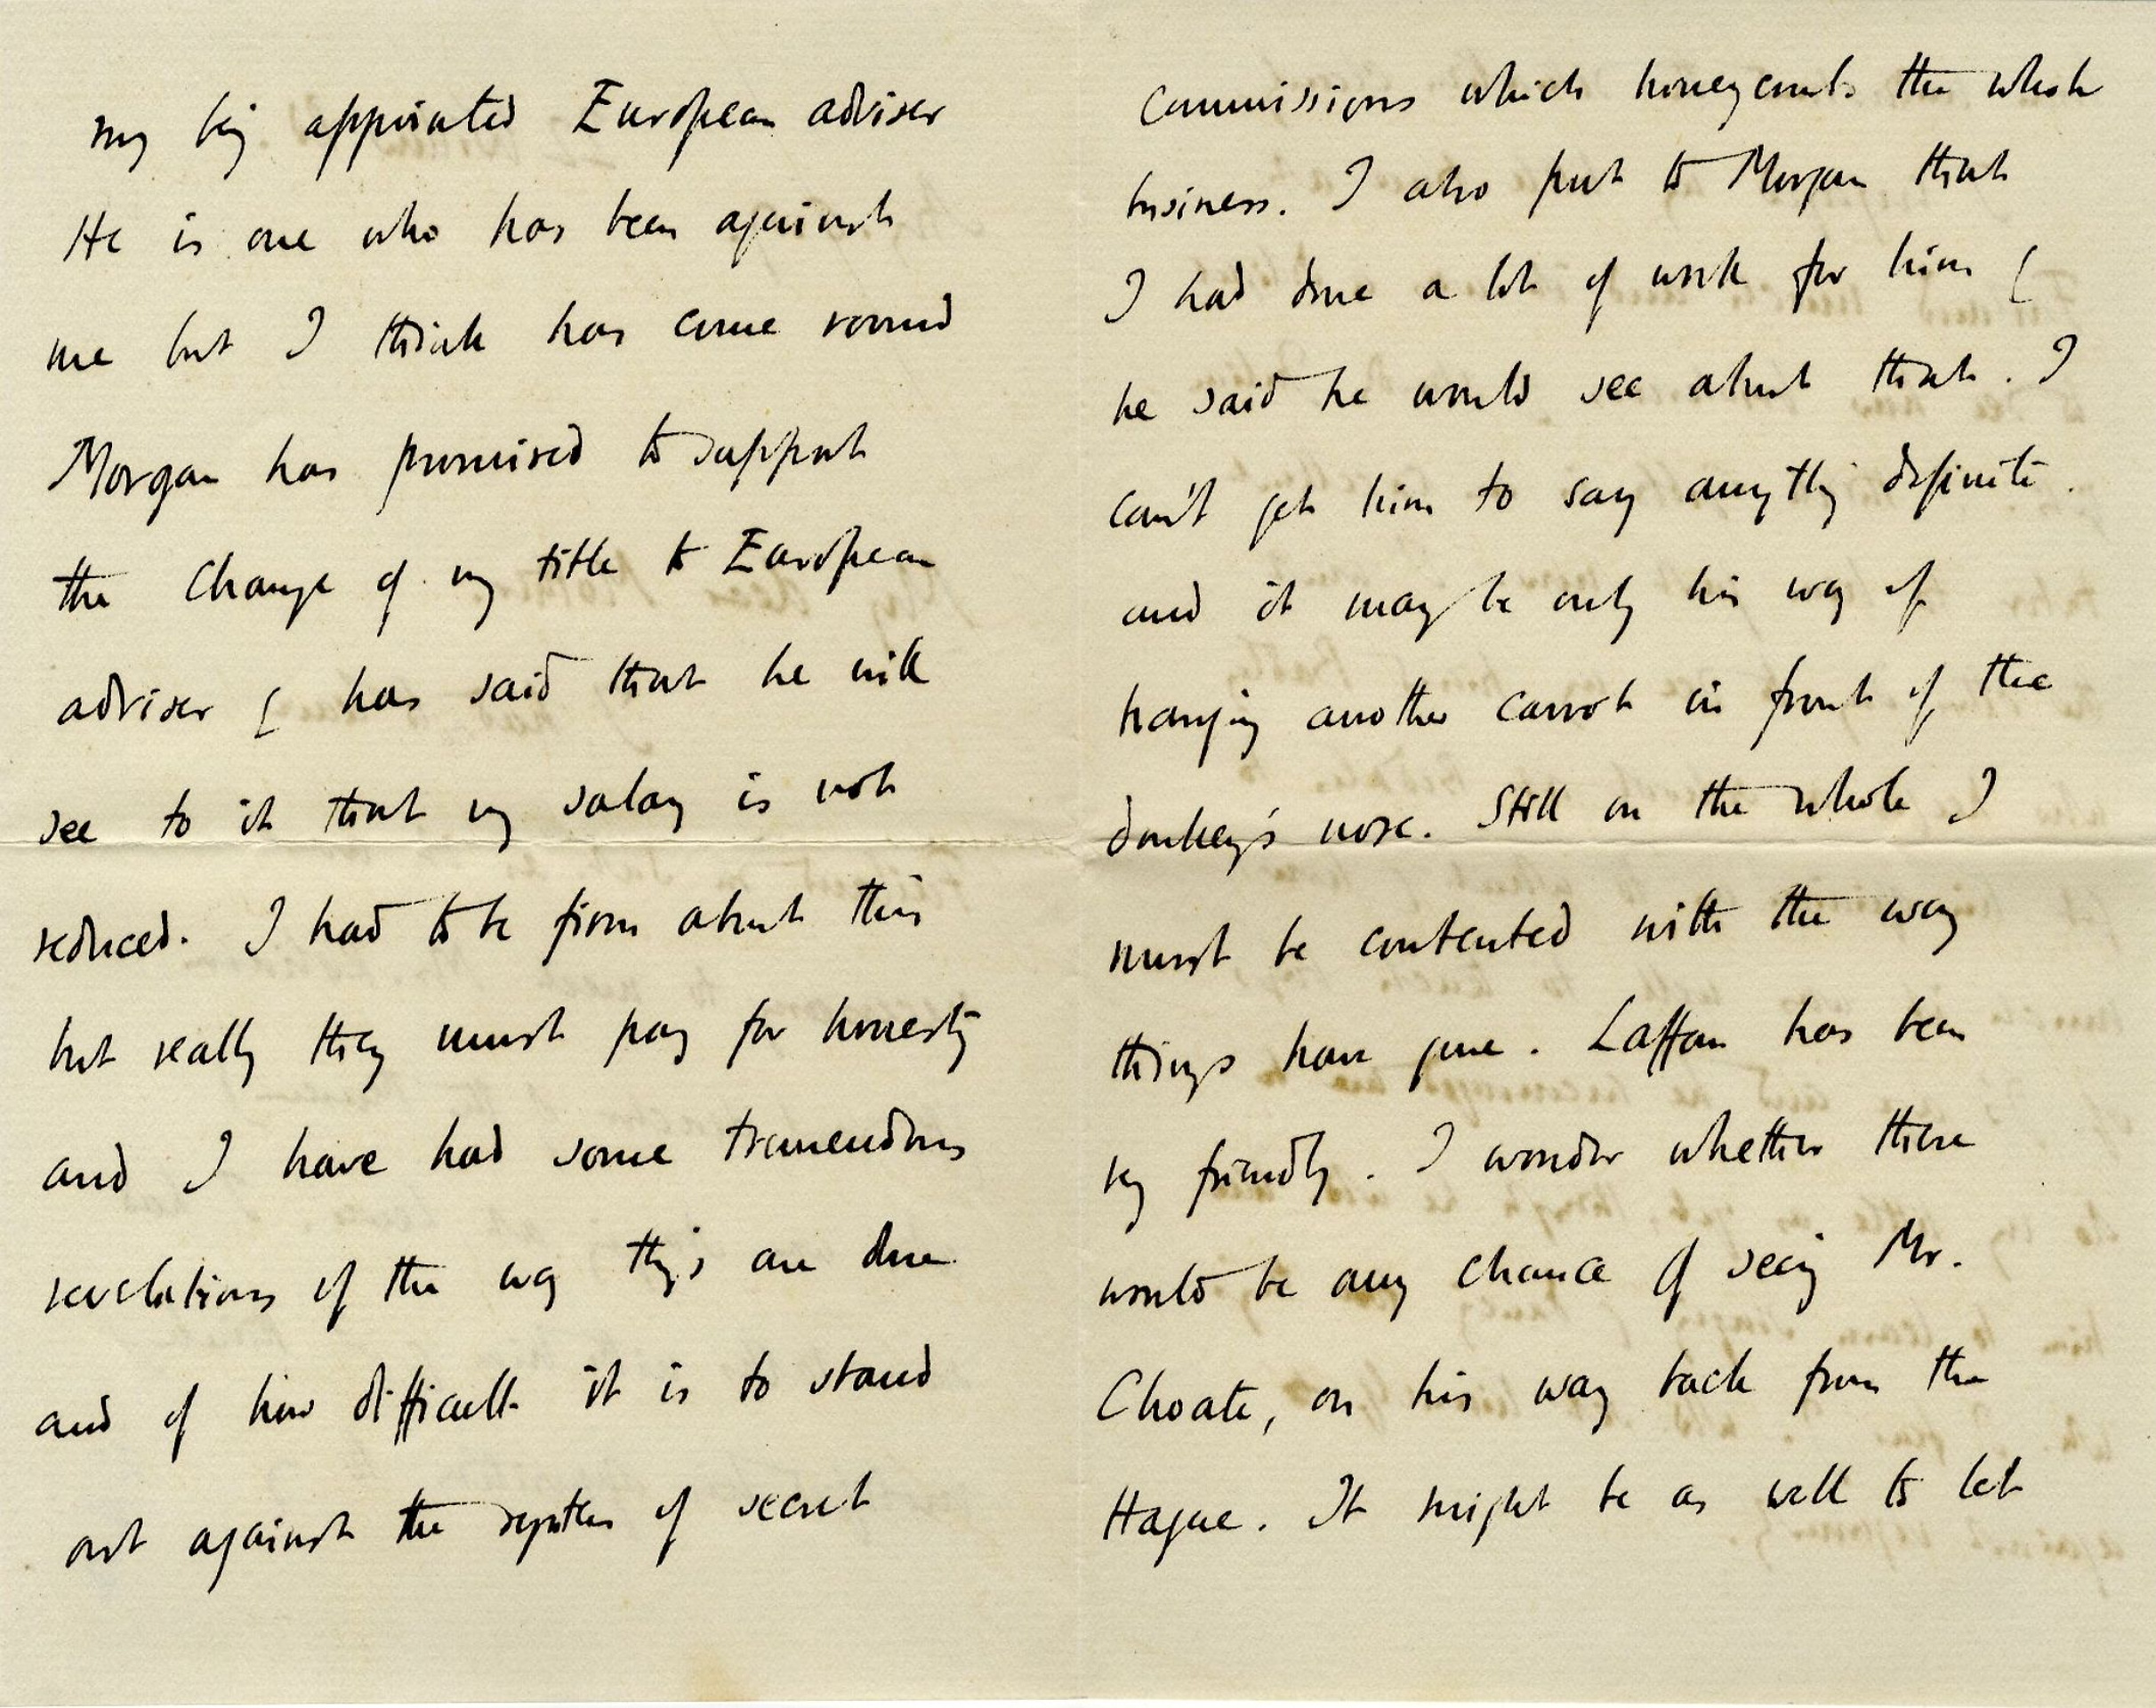 my being appointed European adviser
He is one who has been against
me but I think has come round
Morgan has promised to support
the change of my title to European
adviser & has said that he will
see to it that my salary is not
reduced. I had to be firm about this
but really they must pay for honesty
and I have had some tremendous
revelations of the way things are done
and of how difficult it is to stand
out against the system of secret
commissions which honeycombs the whole
business. I also put to Morgan that
I had done a lot of work for him &
he said he would see about that. I
can't get him to say anything definite.
and it may be only his way of
hanging another carrot in front of the
donkey's nose. Still on the whole I
must be contented with the way
things have gone. Laffan has been
very friendly. I wonder whether there
would be any chance of seeing Mr.
Choate, on his way back from the
Hague. It might be as well to let